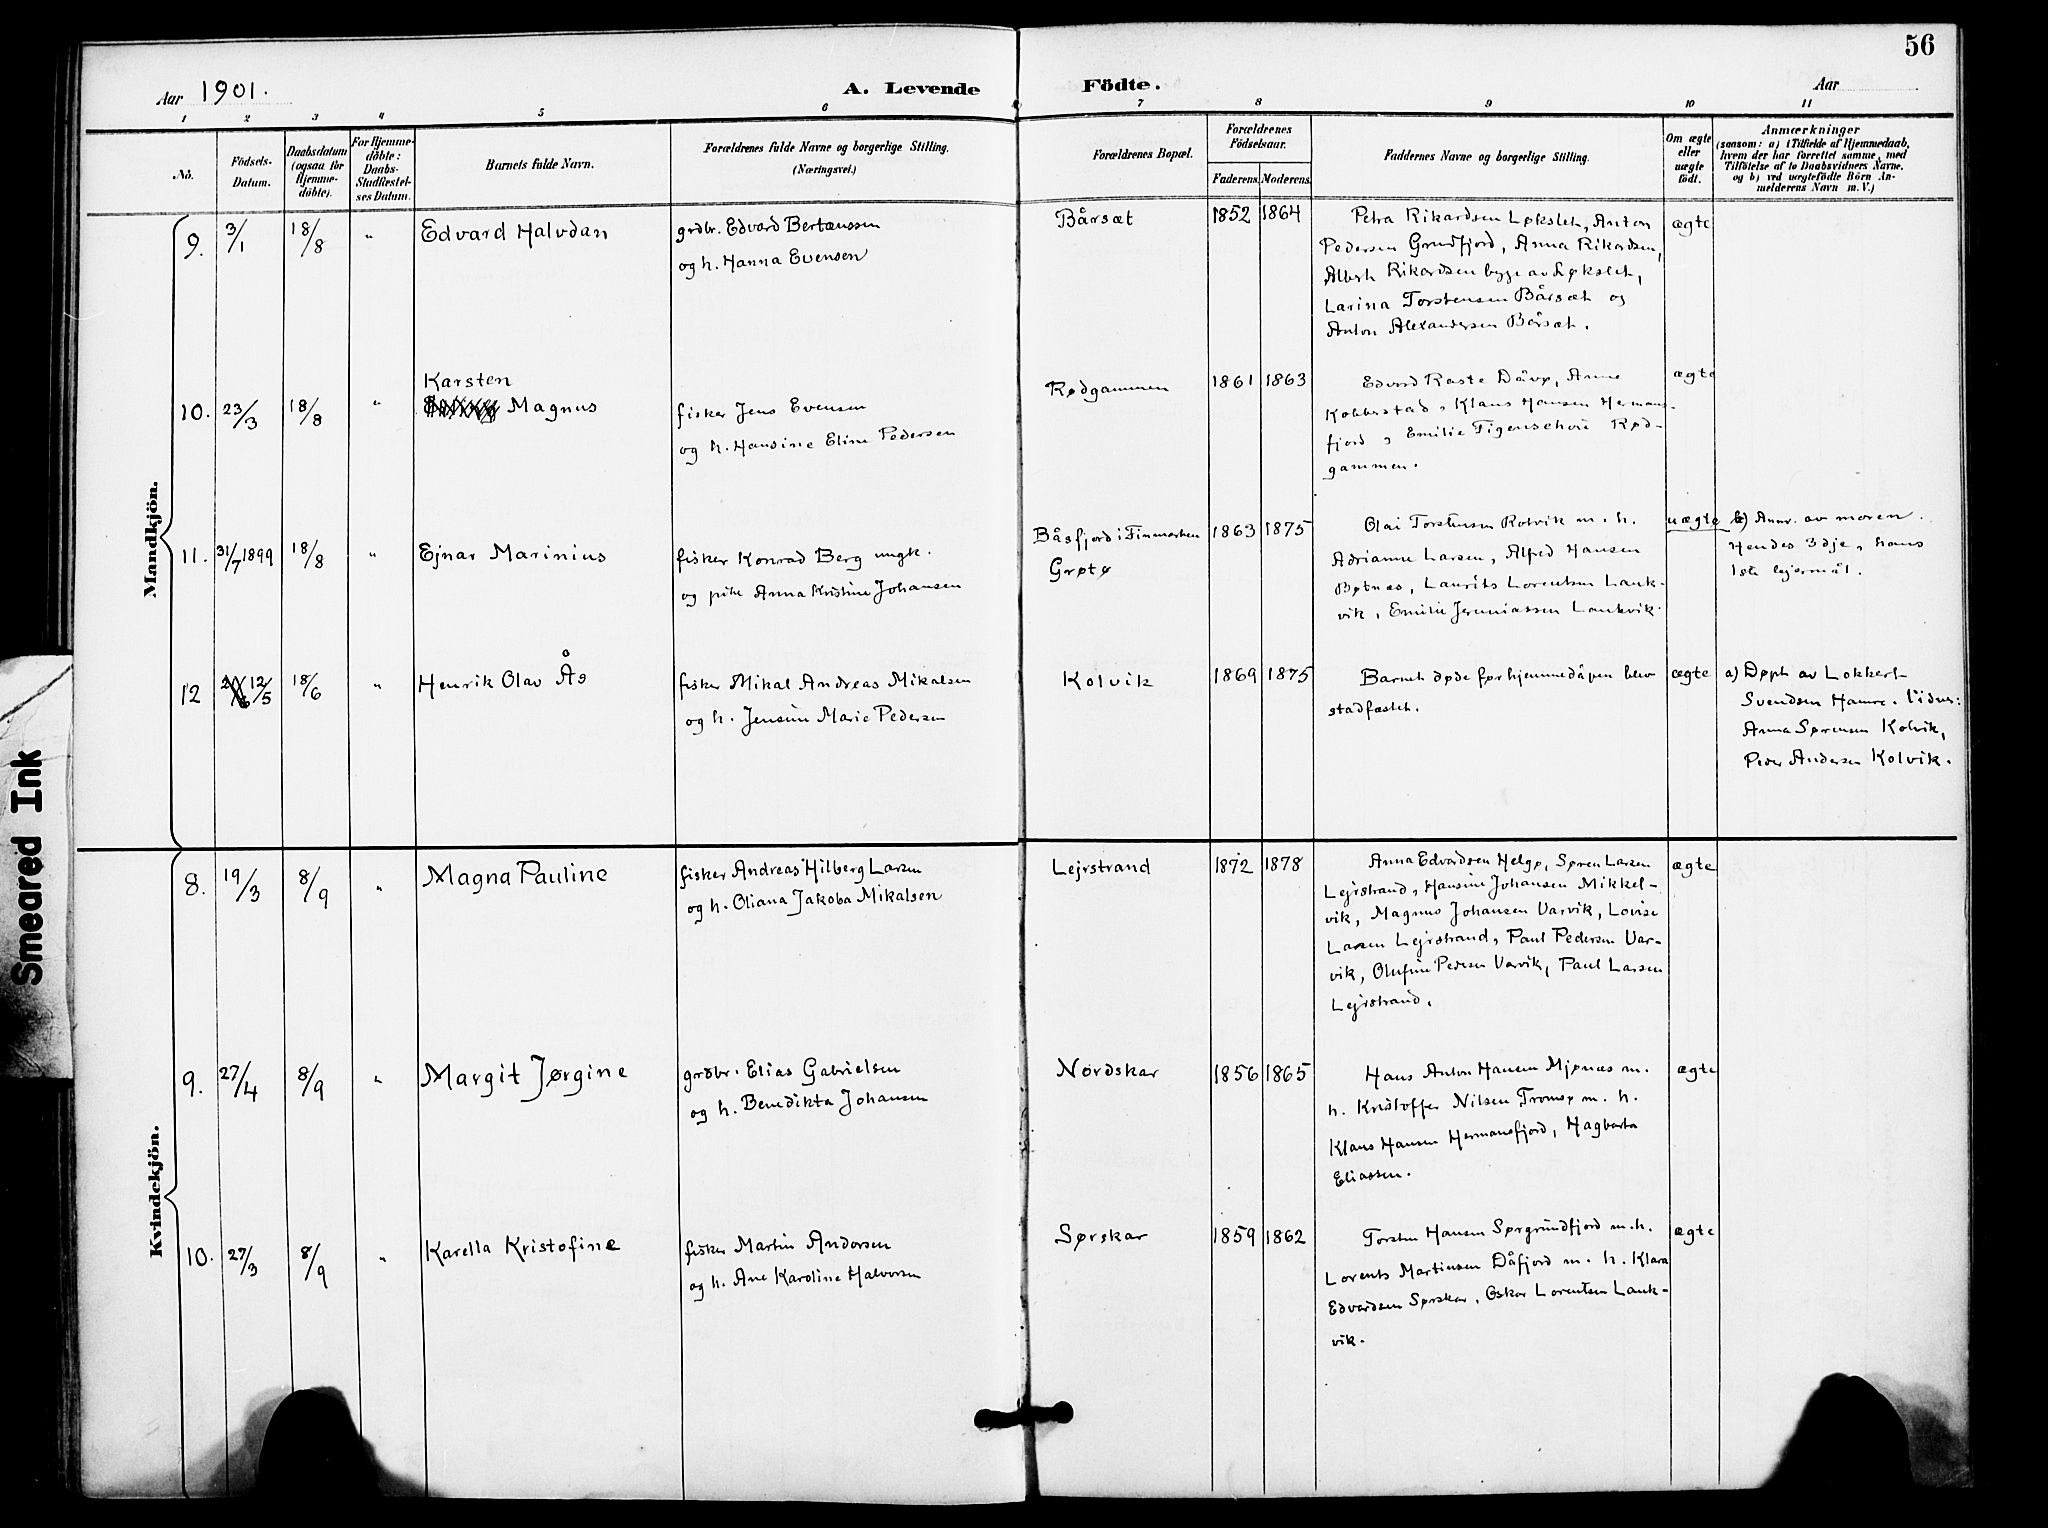 56
Aar 1901.
A. Levende Födte.
Aar
1 2 3 4 5 6 7 8 9 10 11
No.
Födsels-
Datum.
Daabsdatum
(ogsaa for
Hjemme-
döbte).
For Hjemme-
döbte:
Daabs-
Stadfæstel-
ses Datum.
Barnets fulde Navn.
Forældrenes fulde Navne og borgerlige Stilling.
(Næringsvei.)
Forældrenes Bopæl.
Forældrenes
Födselsaar.
Faderens. Moderens.
Faddernes Navne og borgerlige Stilling.
Om ægte
eller
uægte
født.
Anmærkninger
(saasom: a) i Tilfælde af Hjemmedaab,
hvem der har forrettet samme, med
Tilföielse af to Daabsvidners Navne.
og b) ved uægtefödte Börn An-
melderens Navn m. V.)
Mandkjön.
9. 3/1 18/8 " Edvard Halvdan
grdbr. Edvard Bertæussen
og h. Hanna Evensen
Bårsæt 1852 1864
Petra Rikardsen Løkslet, Anton
Pedersen Grundfjord, Anna Rikardsen,
Albert Rikardsen begge av Løkslet,
Larina Torstensen Bårsæt og
Anton Alexandersen Bårsæt.
ægte
Karsten
10. 23/3 18/8 " Magnus
fisker Jens Evensen
og h. Hansine Eline Pedersen
Rødgammen 1861 1863
Edvard Raste Dåvø, Anna
Kobberstad, Klaus Hansen Hermans-
fjord, Emilie Figenschou Rød-
gammen.
ægte
11. 31/7 1899 18/8 " Ejnar Marinius
fisker Konrad Berg ungk.
og pike Anna Kristine Johansen
Båsfjord i Finmarken
Grøtø
1863 1875
Olai Torstensen Rotvik m. h.
Adrianne Larsen, Alfred Hansen
Bøtnæs, Laurits Lorentsen Lauk-
vik, Emilie Jeremiassen Laukvik.
uægte
b) Anm. av moren.
Hendes 3dje, hans
1ste lejermål.
12 12/5 18/6 " Henrik Olav Ås
fisker Mikal Andreas Mikalsen
og h. Jensine Marie Pedersen
Kolvik 1869 1875
Barnet døde før hjemmedåpen blev
stadfæstet.
ægte
a) Døpt av Lokkert
Svendsen Hamre. Vidner:
Anna Sørensen Kolvik,
Peder Andersen Kolvik.
Kvindekjön.
8. 19/3 8/9 " Magna Pauline
fisker Andreas Hilberg Larsen
og h. Oliana Jakoba Mikalsen
Lejrstrand 1872 1878
Anna Edvardsen Helgø, Søren Larsen
Lejrstrand, Hansine Johansen Mikkel-
vik, Magnus Johansen Varvik, Lovise
Larsen Lejrstrand, Paul Pedersen Var-
vik, Olufine Pedersen Varvik, Paul Larsen
Lejrstrand.
ægte
9. 27/4 8/9 " Margit Jørgine
grdbr. Elias Gabrielsen
og h. Benedikta Johansen
Nordskar 1856 1865
Hans Anton Hansen Mjønæs m.
h. Kristoffer Nilsen Tromsø m. h.
Klaus Hansen Hermansfjord, Hagbarta
Eliassen.
ægte
10. 27/3 8/9 " Karella Kristofine
fisker Martin Andorsen
og h. Ane Karoline Halvorsen
Sørskar 1859 1862
Torsten Hansen Sørgrundfjord m.h.
Lorents Martinsen Dåfjord m. h. Klara
Edvardsen Sørskar, Oskar Lorentsen Lauk-
vik.
ægte
Smeared Ink